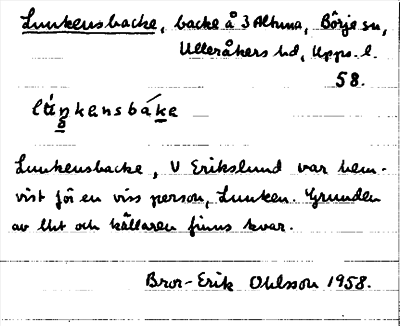 Lunkensbacke, backe å 3 Altuna, Börje sn,
Ulleråkers hd, Upps. l.
58.
lúŋkensbàke
Lunkensbacke, V Erikslund var hem-
vist för en viss person, Lunken. Grunden
av hit och källaren finns kvar.
Bror-Erik Ohlsson 1958.